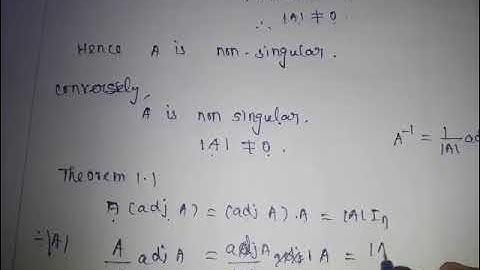 ∴ |A| ≠ 0
Hence A is non-singular.
conversely,
A is non singular.
|A| ≠ 0.
A⁻¹ = 1/|A| ad
Theorem 1.1
A (adj A) = (adj A) . A = |A| Iₙ
÷|A| A adj A = adj A A = |A